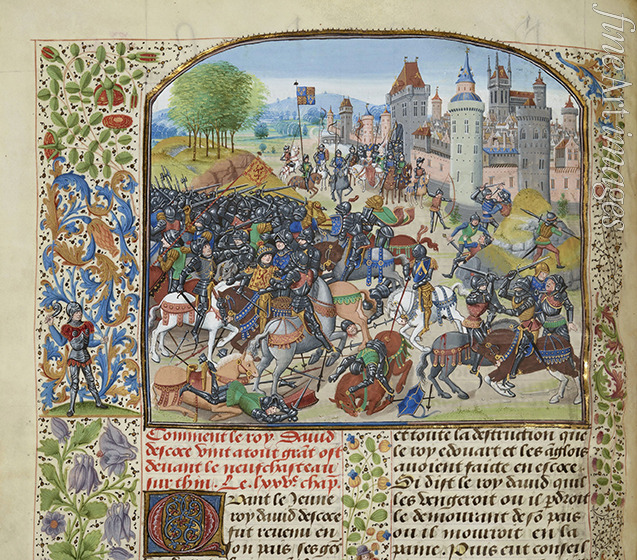 Comment le roy David
descoce vint a tout grāt ost
deuant le neufchasteau
sur thin. Le. lxxvᵉ. chap.
Quant le Jeune
roy dauid descoce
fut reuenu en
son pais ses gēs
et toute la destruction que
le roy edouart et les āglois
auoient faicte en escoce
Si dist le roy dauid quil
les vengeroit ou il p̄droit
le demourant de sō pais
ou il mourroit en la
paine. Puis eut conseil
fineArtimages